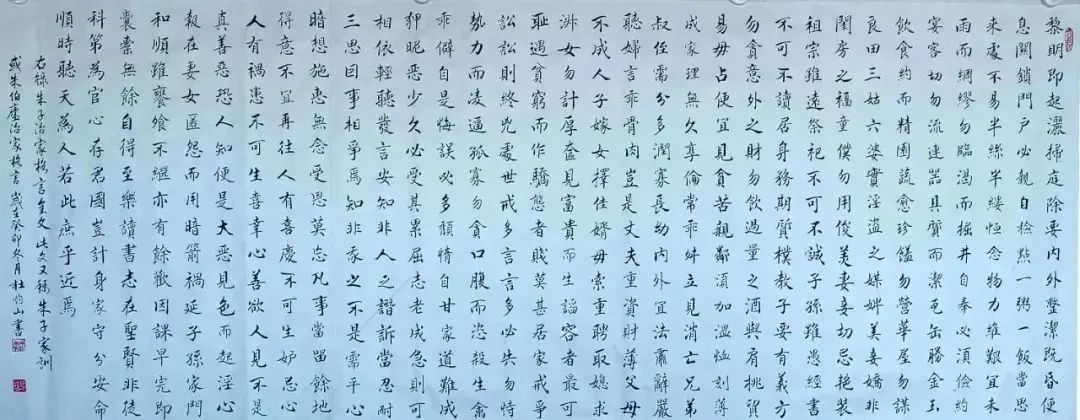 黎明即起灑掃庭除要內外整潔既昏便
息關鎖門戶必親自檢點一粥一飯當思
來處不易半絲半縷恒念物力維艱宜未
雨而綢繆勿臨渴而掘井自奉必須儉約
宴客切勿流連器具質而潔瓦缶勝金玉
飲食約而精園蔬愈珍饈勿營華屋勿謀
良田三姑六婆實淫盜之媒婢美妾嬌非
閨房之福童僕勿用俊美妻妾切忌艷裝
祖宗雖遠祭祀不可不誠子孫雖愚經書
不可不讀居身務期質樸教子要有義方
勿貪意外之財勿飲過量之酒與肩挑貿
易毋占便宜見貧苦親鄰須加溫恤刻薄
成家理無久享倫常乖舛立見消亡兄弟
叔侄需分多潤寡長幼內外宜法肅辭嚴
聽婦言乖骨肉豈是丈夫重資財薄父母
不成人子嫁女擇佳婿毋索重聘取媳求
淑女勿計厚奩見富貴而生諂容者最可
恥遇貧窮而作驕態者賤莫甚居家戒爭
訟訟則終兇處世戒多言言多必失勿恃
勢力而凌逼孤寡勿貪口腹而恣殺生禽
乖僻自是悔誤必多頹惰自甘家道難成
狎昵惡少久必受其累屈志老成急則可
相依輕聽發言安知非人之譖訴當忍耐
三思因事相爭焉知非我之不是需平心
暗想施惠無念受恩莫忘凡事當留餘地
得意不宜再往人有喜慶不可生妒忌心
人有禍患不可生喜幸心善欲人見不是
真善惡恐人知便是大惡見色而起淫心
報在妻女匿怨而用暗箭禍延子孫家門
和順雖饔飧不繼亦有餘歡國課早完即
囊橐無餘自得至樂讀書志在聖賢非徒
科第為官心存君國豈計身家守分安命
順時聽天為人若此庶乎近焉
右錄朱子治家格言全文此文又稱朱子家訓
或朱伯廬治家格言歲在癸卯冬月杜山書